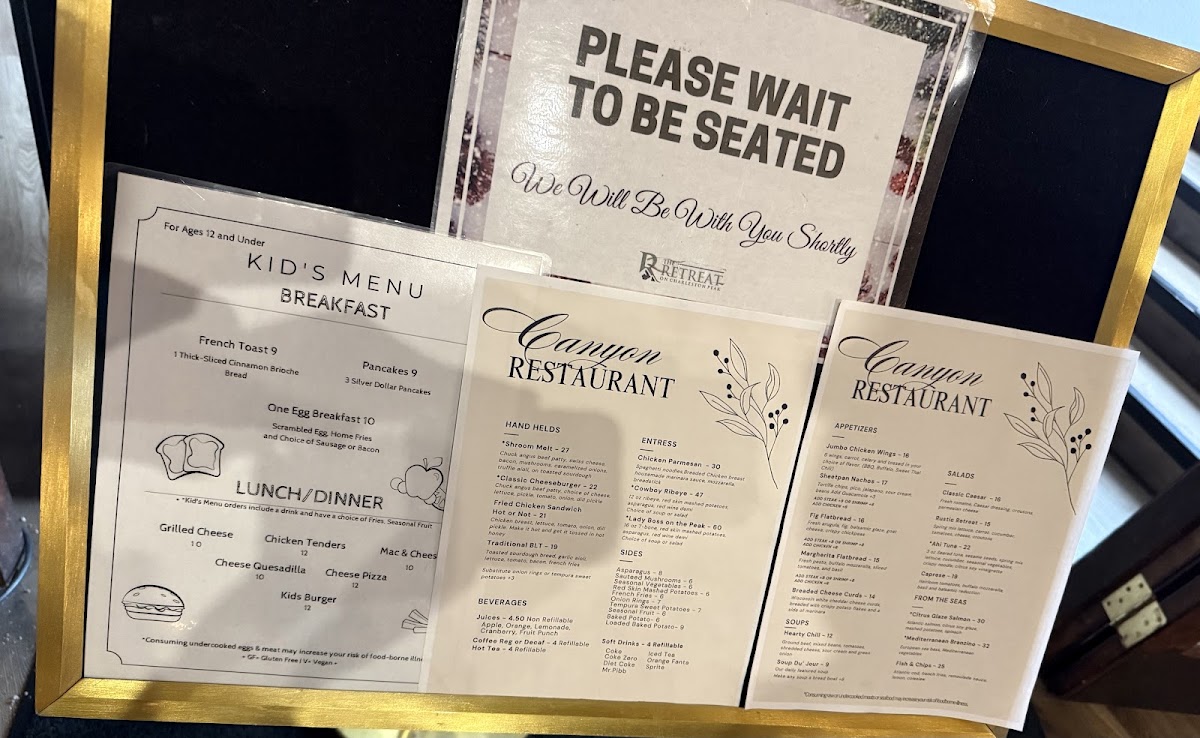 PLEASE WAIT
TO BE SEATED
We Will Be With You Shortly
THE
RETREAT
ON CHARLESTON PEAK
For Ages 12 and Under
KID'S MENU
BREAKFAST
French Toast 9
1 Thick-Sliced Cinnamon Brioche
Bread
Pancakes 9
3 Silver Dollar Pancakes
One Egg Breakfast 10
Scrambled Egg, Home Fries
and Choice of Sausage or Bacon
LUNCH/DINNER
• *Kid's Menu orders include a drink and have a choice of Fries, Seasonal Fruit
Grilled Cheese
10
Chicken Tenders
12
Mac & Chees
10
Cheese Quesadilla
10
Cheese Pizza
12
Kids Burger
12
*Consuming undercooked eggs & meat may increase your risk of food-borne illn
• GF- Gluten Free I V- Vegan •
Canyon
RESTAURANT
HAND HELDS
*Shroom Melt - 27
Chuck angus beef patty, swiss cheese,
bacon, mushrooms, caramelized onions,
truffle aioli, on toasted sourdough
*Classic Cheeseburger - 22
Chuck angus beef patty, choice of cheese
lettuce, pickle, tomato, onion, dill pickle
Fried Chicken Sandwich
Hot or Not - 21
Chicken breast, lettuce, tomato, onion, dill
pickle. Make it hot and get it tossed in hot
honey.
Traditional BLT - 19
Toasted sourdough bread, garlic aioli,
lettuce, tomato, bacon, french fries
Substitute onion rings or tempura sweet
potatoes +3
BEVERAGES
Juices - 4.50 Non Refillable
Apple, Orange, Lemonade,
Cranberry, Fruit Punch
Coffee Reg or Decaf - 4 Refillable
Hot Tea - 4 Refillable
ENTRESS
Chicken Parmesan - 30
Spaghetti noodles, Breaded Chicken breast
homemade marinara sauce, mozzarella,
breadstick
*Cowboy Ribeye - 47
12 oz ribeye, red skin mashed potatoes,
asparagus, red wine demi
Choice of soup or salad
*Lady Boss on the Peak - 60
16 oz T-bone, red skin mashed potatoes,
asparagus, red wine demi
Choice of soup or salad
SIDES
Asparagus - 8
Sauteed Mushrooms - 6
Seasonal Vegetables - 6
Red Skin Mashed Potatoes - 6
French Fries - 6
Onion Rings - 7
Tempura Sweet Potatoes - 7
Seasonal Fruit - 6
Baked Potato- 6
Loaded Baked Potato- 9
Soft Drinks - 4 Refillable
Coke Iced Tea
Coke Zero Orange Fanta
Diet Coke Sprite
Mr.Pibb
Canyon
RESTAURANT
APPETIZERS
Jumbo Chicken Wings - 16
6 wings, carrot, celery and tossed in your
choice of flavor (BBQ, Buffalo, Sweet Thai
Chili)
Sheetpan Nachos - 17
Tortilla chips, pico, jalapeno, sour cream,
beans Add Guacamole +3
ADD STEAK +8 OR SHRIMP +8
ADD CHICKEN +6
Fig Flatbread - 16
Fresh arugula, fig, balsamic glaze, goat
cheese, crispy chickpeas
ADD STEAK +8 OR SHRIMP +8
ADD CHICKEN +6
Margherita Flatbread - 15
Fresh pesto, buffalo mozzarella, sliced
tomatoes, and basil
ADD STEAK +8 OR SHRIMP +8
ADD CHICKEN +6
Breaded Cheese Curds - 14
Wisconsin white cheddar cheese curds,
breaded with crispy potato flakes and a
side of marinara
SOUPS
Hearty Chili - 12
Ground beef, mixed beans, tomatoes,
shredded cheese, sour cream and green
onion
Soup Du' Jour - 9
Our daily featured soup
Make any soup a bread bowl +6
SALADS
Classic Caesar - 16
Fresh romaine, Caesar dressing, croutons,
parmesan cheese
Rustic Retreat - 15
Spring mix lettuce, carrot, cucumber,
tomatoes, cheese, croutons
*Ahi Tuna - 22
3 oz Seared tuna, sesame seeds, spring mix
lettuce, cucumber, seasonal vegetables,
crispy noodle, citrus soy vinaigrette
Caprese - 18
Heirloom tomatoes, buffalo mozzarella,
basil and balsamic reduction
FROM THE SEAS
*Citrus Glaze Salmon - 30
Atlantic salmon, citrus soy glaze,
mashed potatoes, spinach
*Mediterranean Branzino - 32
European sea bass, Mediterranean
vegetables
Fish & Chips - 25
Atlantic cod, french fries, remoulade sauce,
lemon, coleslaw
*Consuming raw or undercooked meats or seafood may increase your risk of food borne illness.